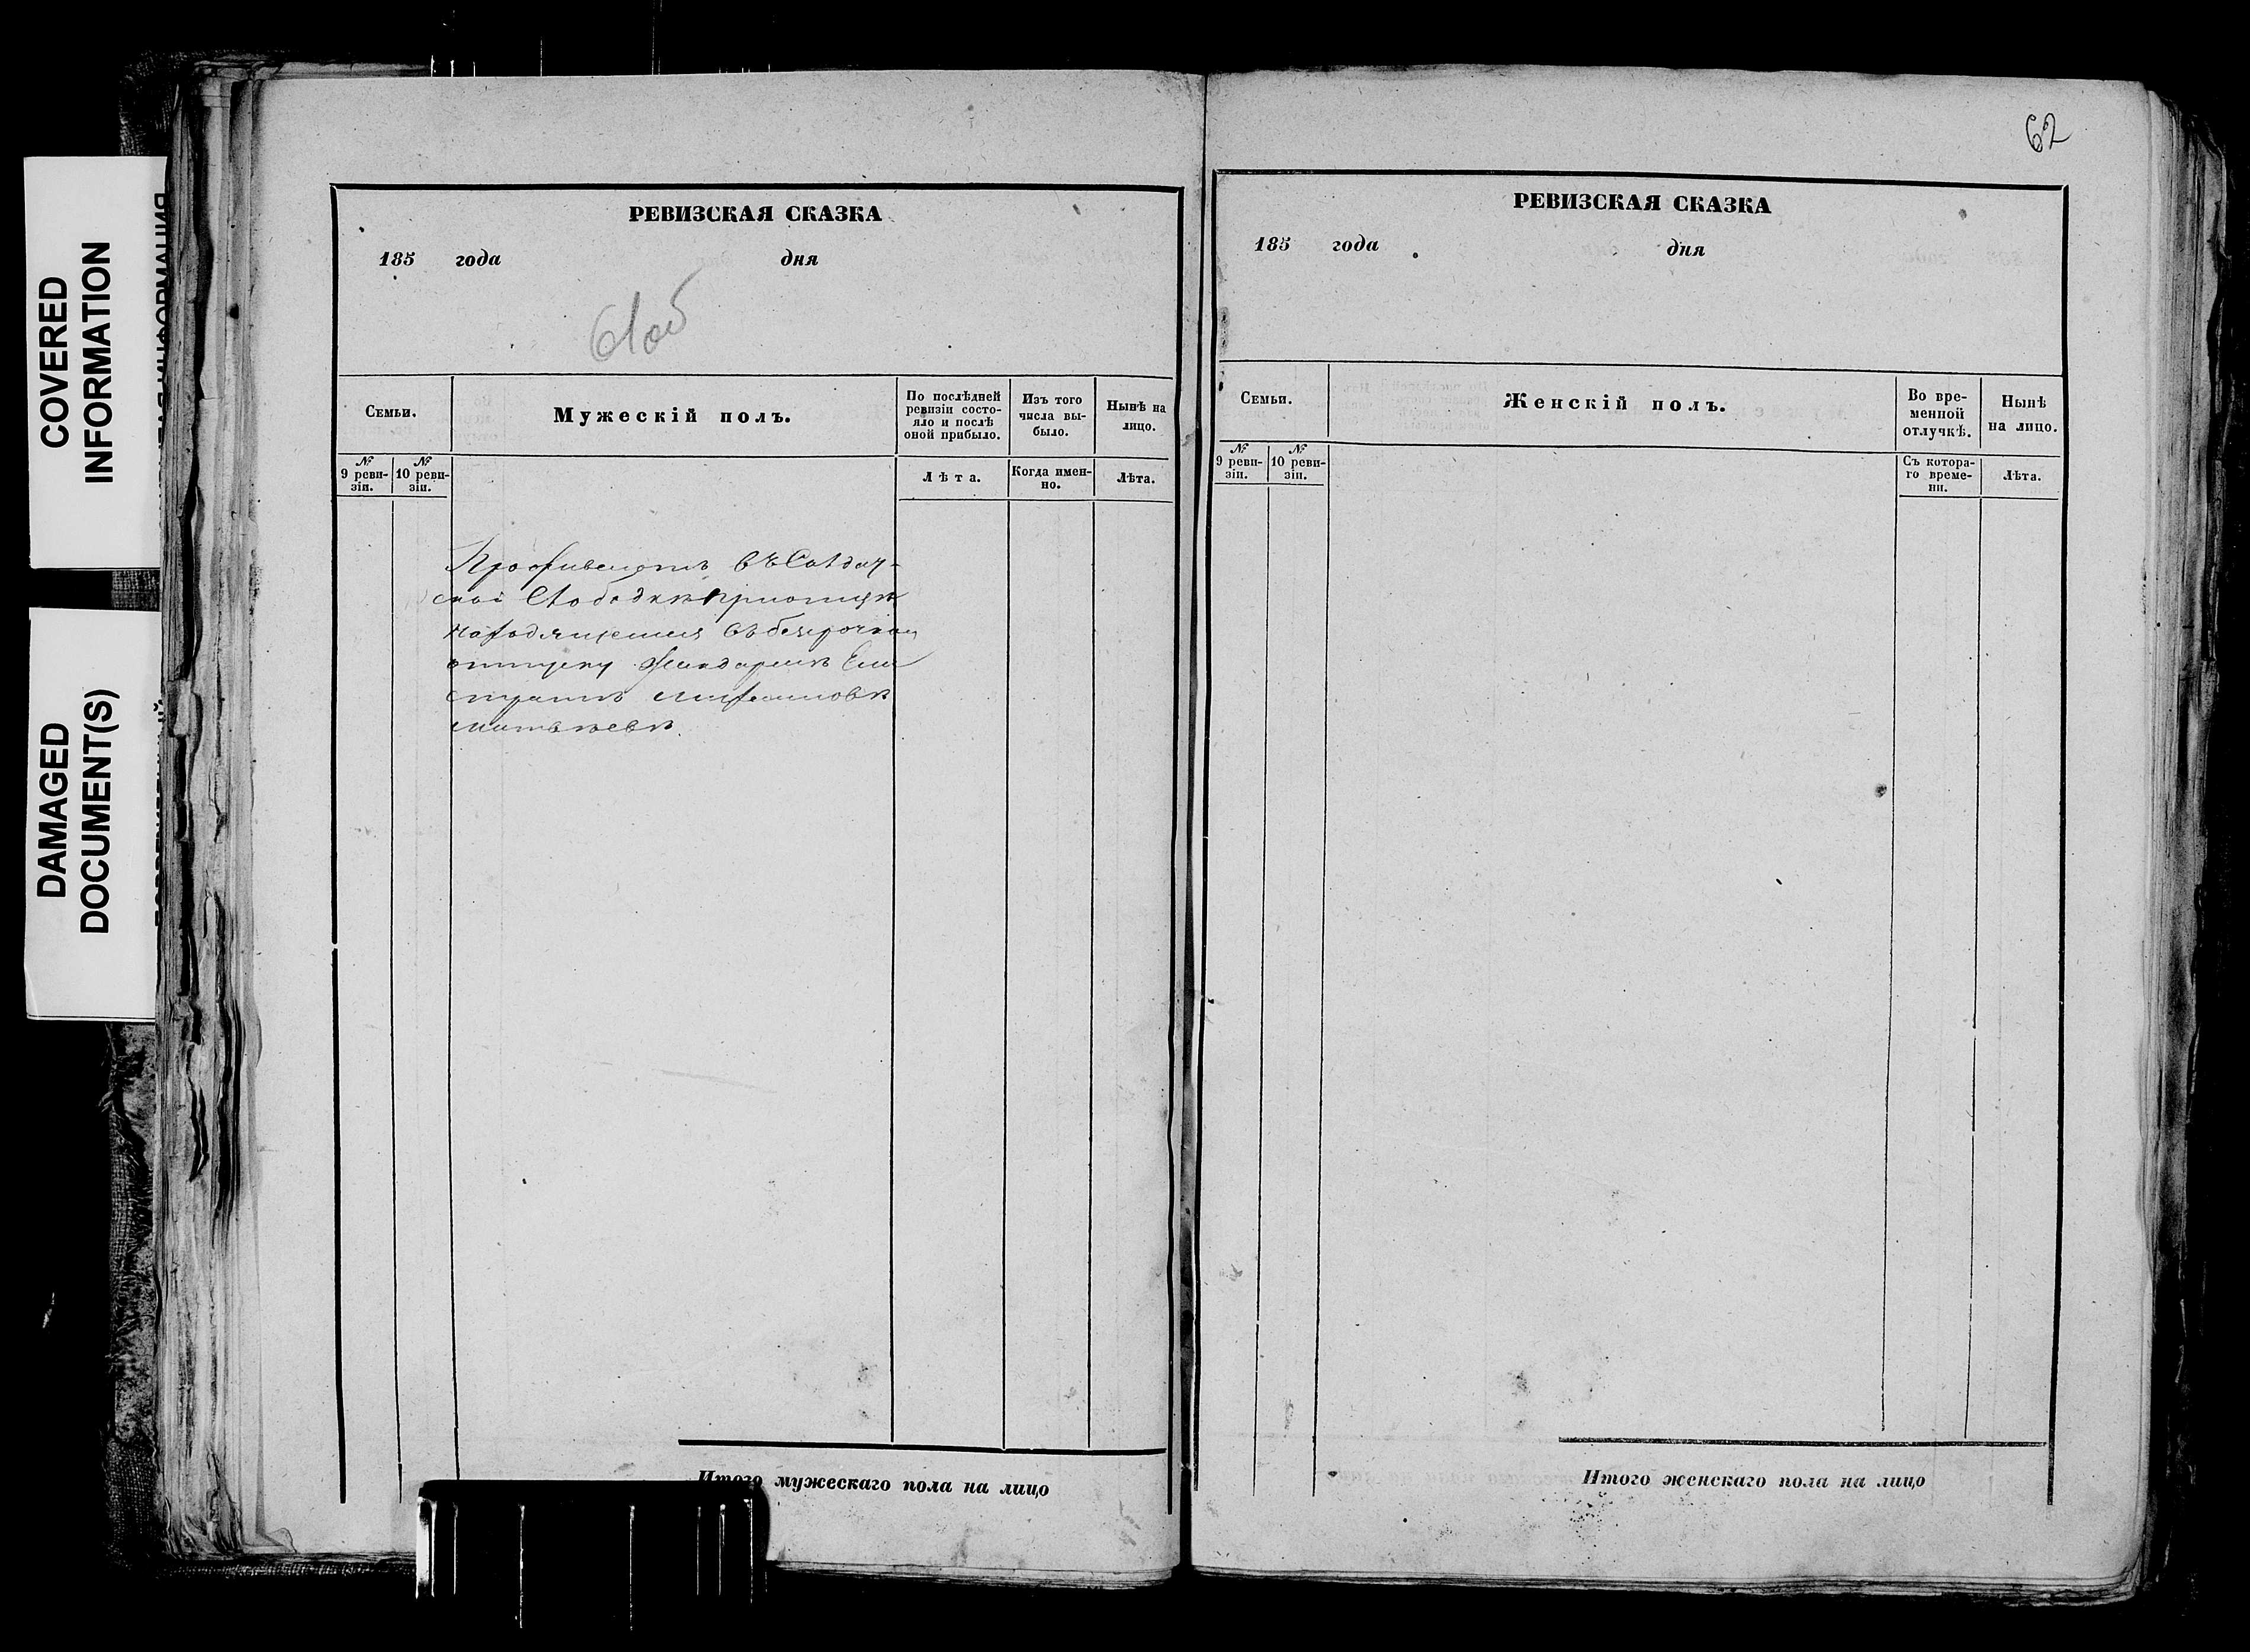 COVERED
INFORMATION
DAMAGED
DOCUMENT(S)
РЕВИЗСКАЯ СКАЗКА
185 года дня
61об
Семьи.
Мужескій полъ.
По послѣдней
ревизіи состо-
яло и послѣ
оной прибыло.
Изъ того
числа вы-
было.
Нынѣ на
лицо.
№
9 реви-
зіи.
№
10 реви-
зіи.
Лѣта.
Когда имен-
но.
Лѣта.
Проживаютъ въ Солдат-
ской Слободкѣ при отцѣ
находящемся въ безсрочном
отпуску Жандармѣ
Матвѣевѣ.
Итого мужескаго пола на лицо
62
РЕВИЗСКАЯ СКАЗКА
185 года дня
Семьи.
Женскій полъ.
Во вре-
менной
отлучкѣ.
Нынѣ
на лицо.
№
9 реви-
зіи.
№
10 реви-
зіи.
Съ котора-
го време-
ни.
Лѣта.
Итого женскаго пола на лицо